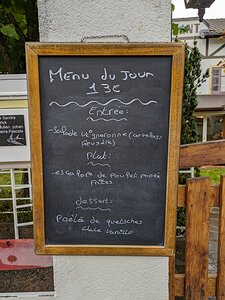 Menu du Jour
13€
Entrée:
-Salade Vigneronne (cervelas,
Gruyère)
Plat:
-escalope de poulet panée
frites
dessert:
Poêlé de quetsches
glace vanille